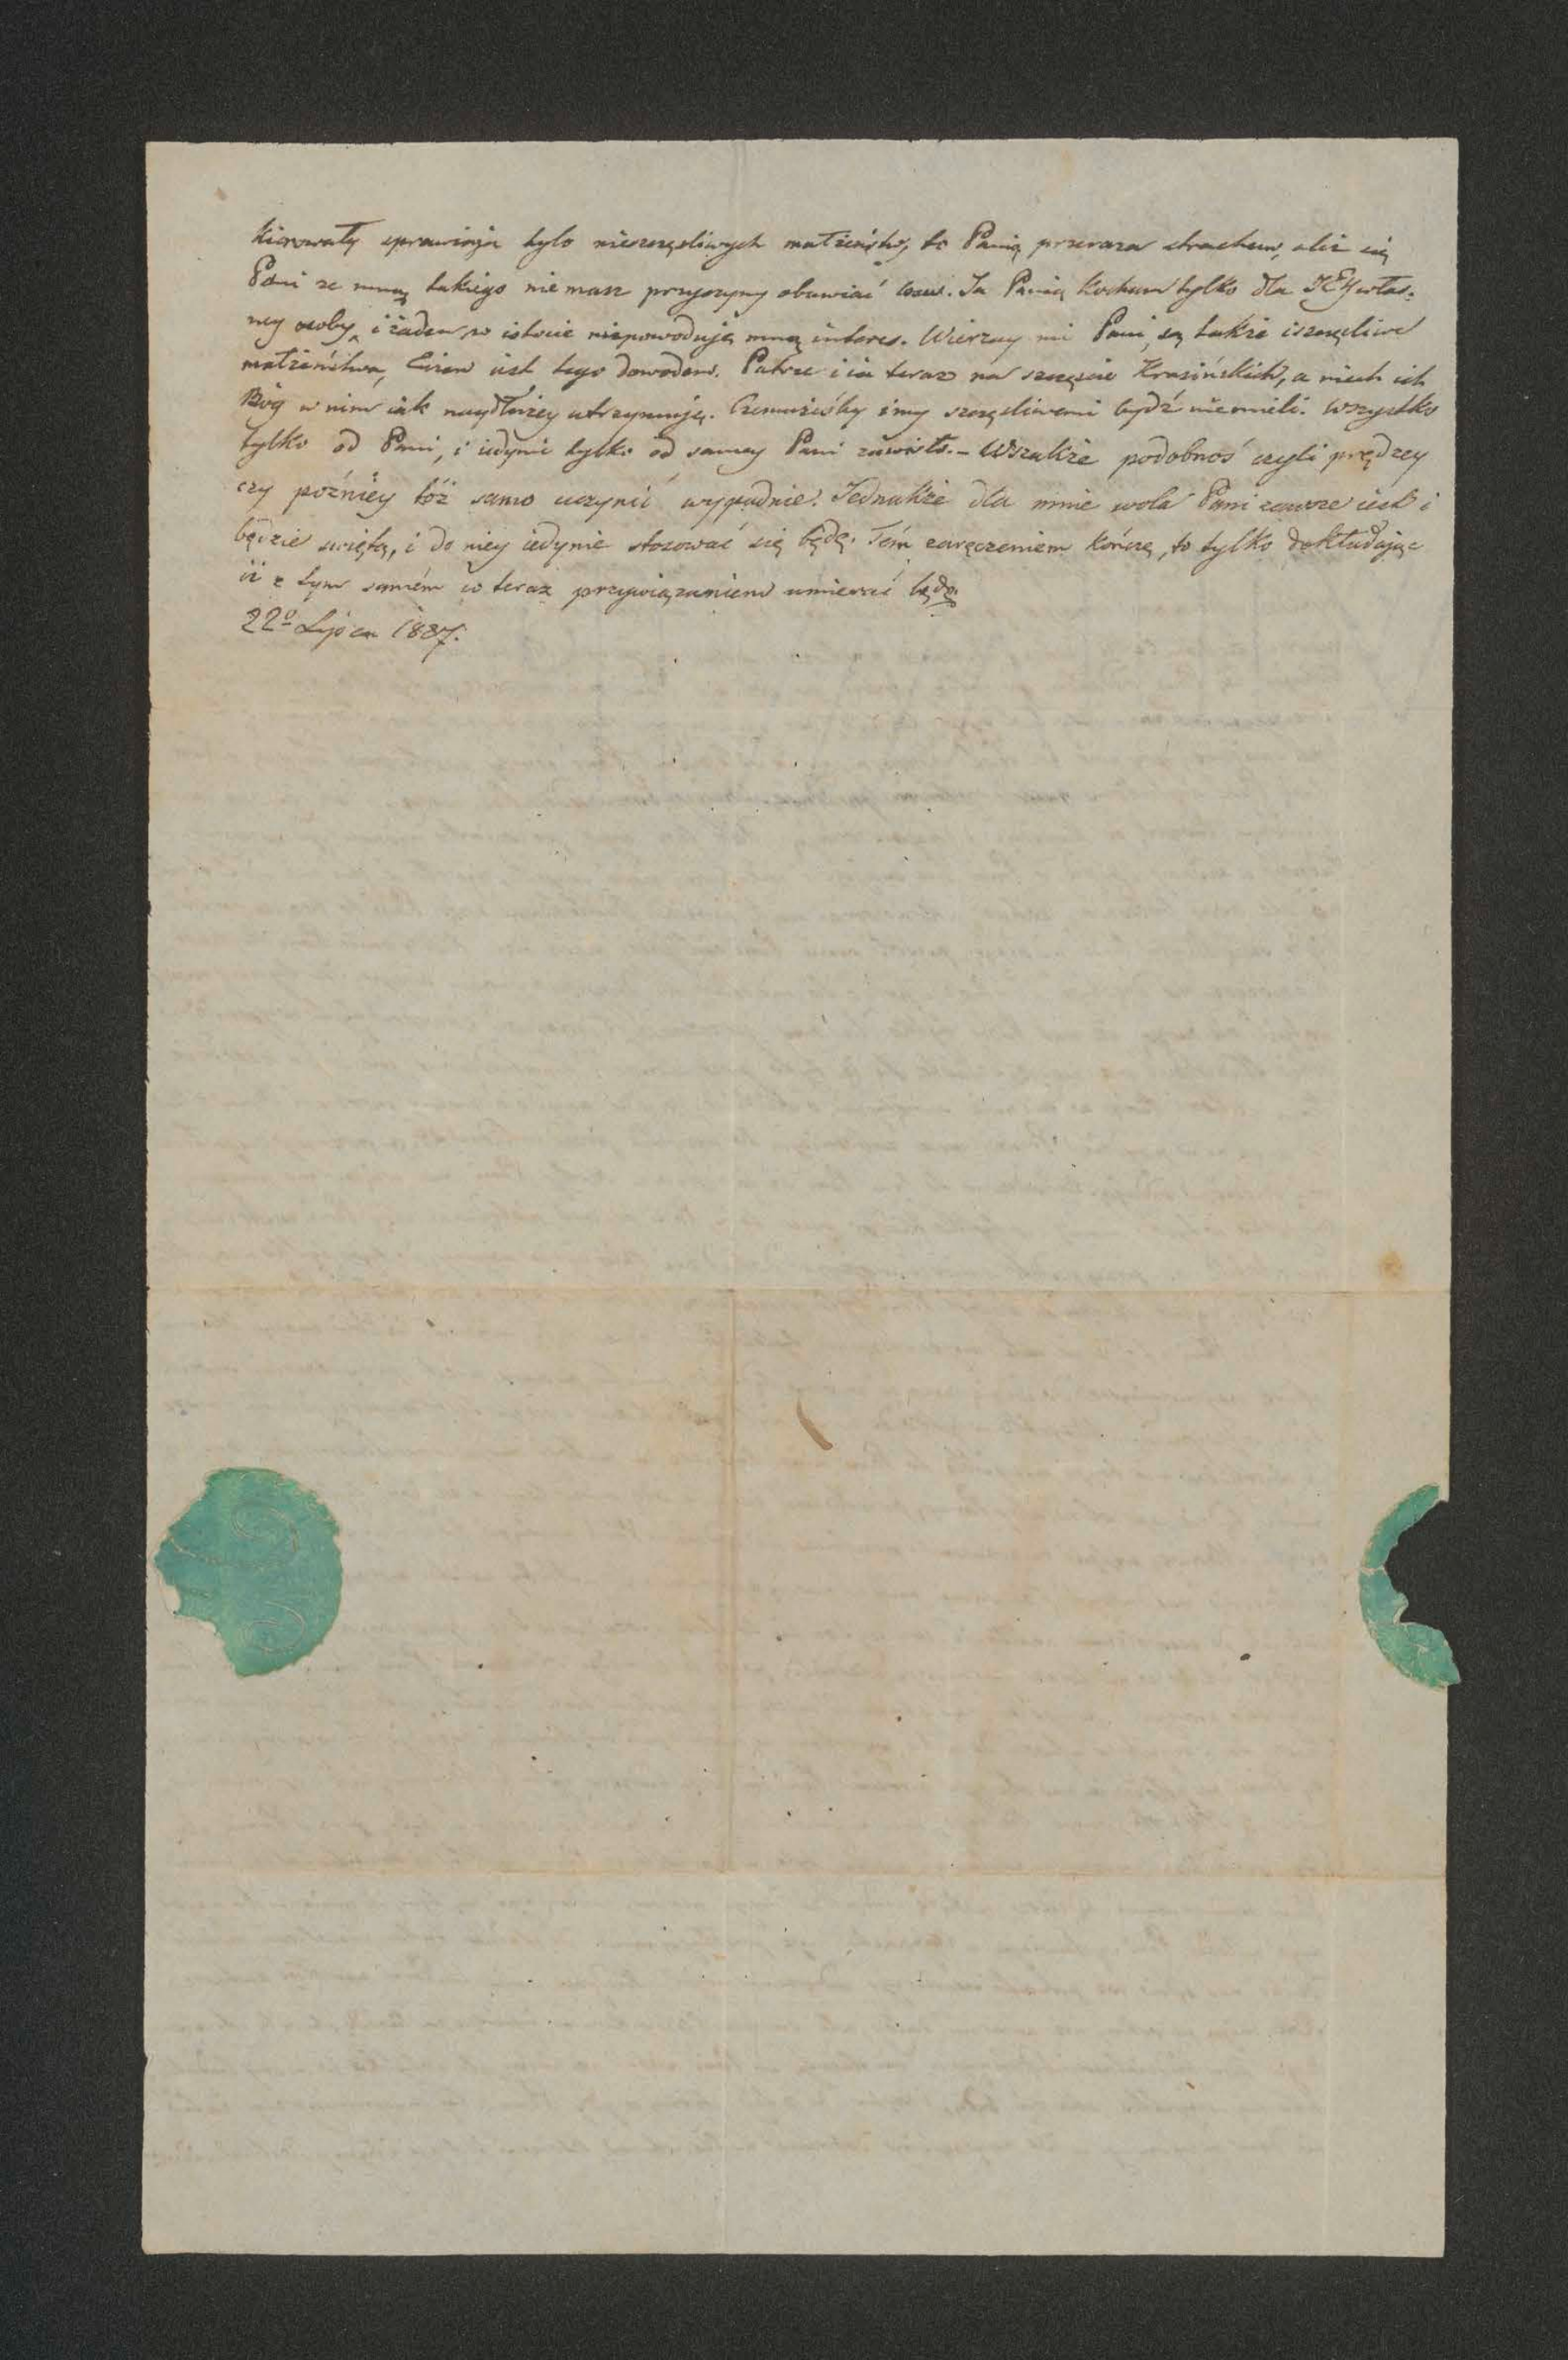 kierowały sprawiają tylo nieszczęśliwych małżeństw, to Panią przeraża strachem, aliż się
Pani ze mną takiego nie masz przyczyny obawiać losu. Ja Panią kocham tylko dla JEY włas-
ney osoby, i żaden w istocie niepowoduje mną interes. Wierzay mi Pani, są także i szczęśliwe
małżeństwa, iest tego dowodem. Patrzę i ia teraz na szczęście Krasińskich, a niech ich
Bóg w nim iak naydłużey utrzymuje. Czemużeśby i my szczęśliwemi bydź nie mieli. Wszystko
tylko od Pani, i iedynie tylko od samey Pani zawisło.- Wszakże podobnoś czyli prędzey
czy poźniey tóż samo uczynić wypadnie. Jednakże dla mnie wola Pani zawsze iest i
będzie świętą, i do niey iedynie stosować się będę. Tém zaręczeniem kończę, to tylko dokładając
iż z tym samém co teraz przywiązaniem umierać będę.
22º Lipca 1837.